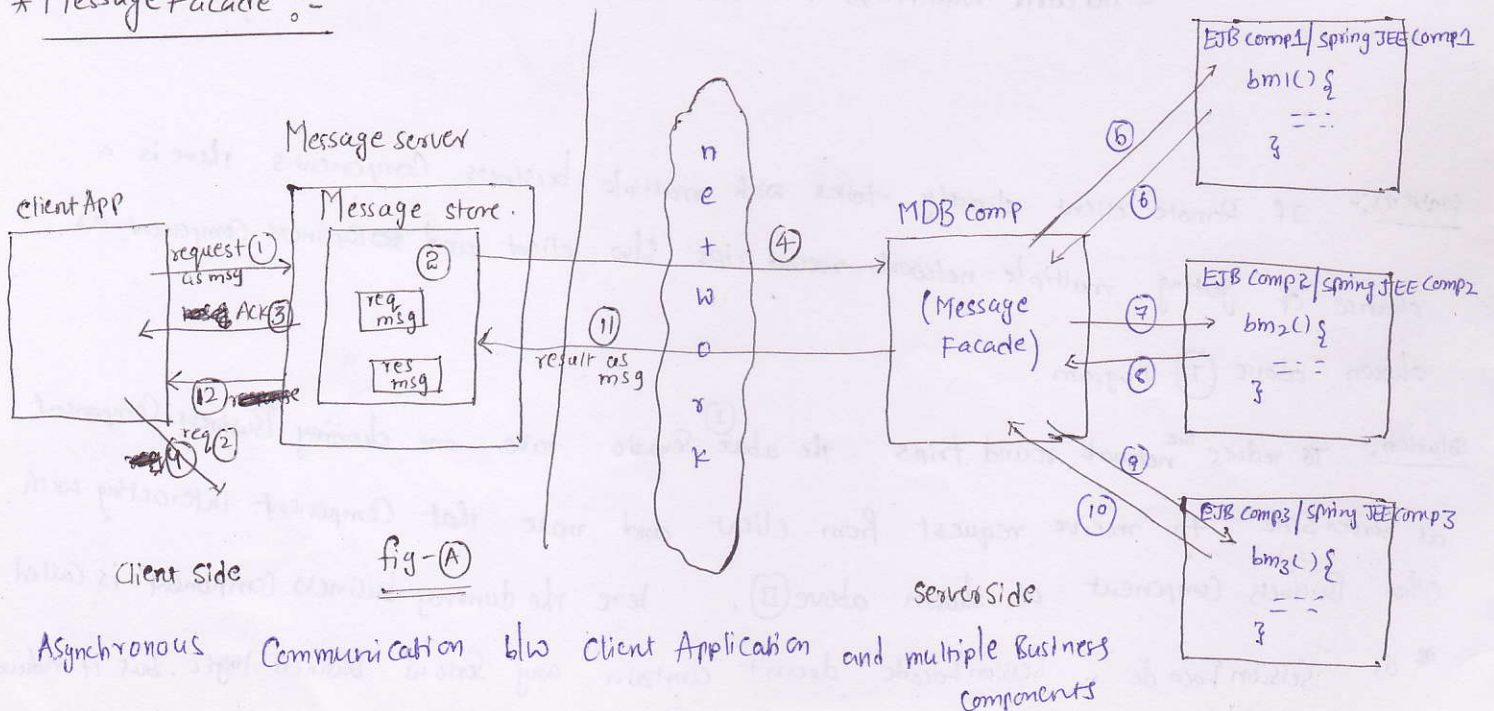 * Message Facade :-
Message server
client App
Message store.
request ①
as msg
②
req
msg
ACK ③
res
msg
⑫
req ②
Client side
fig-Ⓐ
④
⑪
result as
msg
n
e
t
w
o
r
k
MDB comp
(Message
Facade)
⑤
⑥
⑦
⑧
⑨
⑩
EJB comp1/spring JEE comp1
bm1() {
}
EJB comp2/spring JEE comp2
bm2() {
}
EJB comp3/spring JEE comp3
bm3() {
}
serverside
Asynchronous Communication b/w Client Application and multiple Business
components